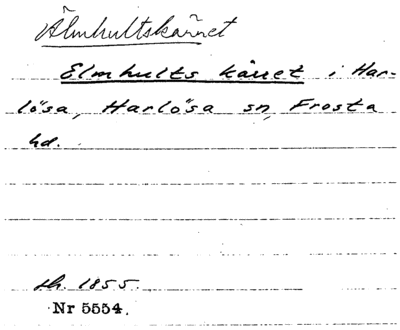 Älmhultskärret
Elmhults kärret i Har-
lösa, Harlösa sn, Frosta
hd.
sh. 1855.
Nr 5554.